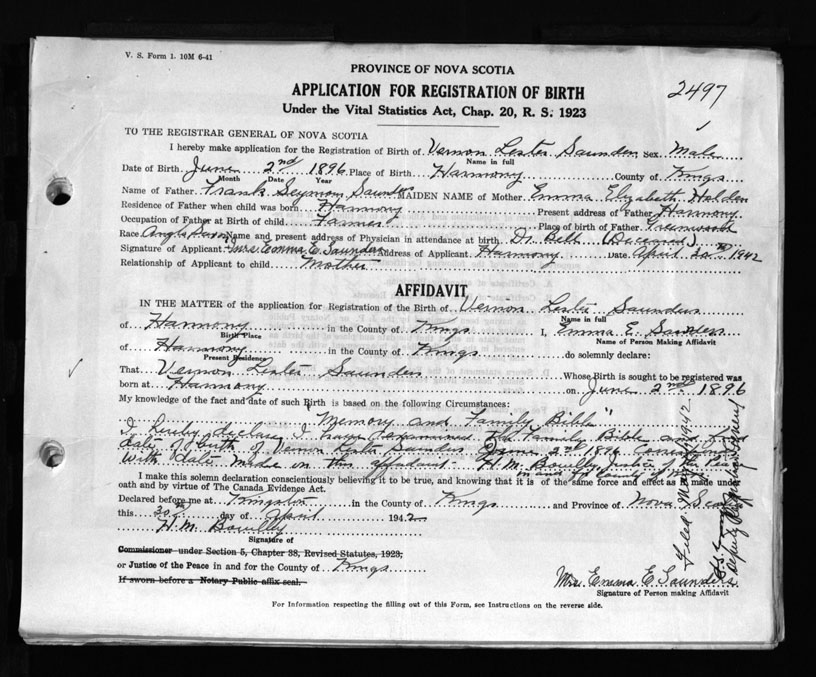 V. S. Form 1. 10M 6-41
PROVINCE OF NOVA SCOTIA
APPLICATION FOR REGISTRATION OF BIRTH
Under the Vital Statistics Act, Chap. 20, R. S. 1923
2497
TO THE REGISTRAR GENERAL OF NOVA SCOTIA
I hereby make application for the Registration of Birth of Vernon Lester Saunders Sex Male
Name in full
Date of Birth June 2nd 1896 Place of Birth Harmony County of Kings
Month Date Year
Name of Father Frank Seymour Saunders MAIDEN NAME of Mother Emma Elizabeth Holden
Residence of Father when child was born Harmony Present address of Father Harmony
Occupation of Father at Birth of child Farmer Place of birth of Father Greenwood
Race Anglo Saxon Name and present address of Physician in attendance at birth Dr Bell (Deceased)
Signature of Applicant Mrs. Emma E. Saunders Address of Applicant Harmony Date April 30th 1942
Relationship of Applicant to child Mother
AFFIDAVIT
IN THE MATTER of the application for Registration of the Birth of Vernon Lester Saunders
Name in full
of Harmony in the County of Kings I, Emma E. Saunders
Birth Place Name of Person Making Affidavit
of Harmony in the County of Kings do solemnly declare:
Present Residence
That Vernon Lester Saunders Whose Birth is sought to be registered was
born at Harmony on June 2nd 1896
My knowledge of the fact and date of such Birth is based on the following Circumstances:
"Memory and Family Bible"
I hereby declare I have examined the Family Bible and find
date of birth of Vernon Lester Saunders June 2nd 1896 corresponds
with date made on this affidavit - H. M. Justice of the Peace
in and for County of Kings
I make this solemn declaration conscientiously believing it to be true, and knowing that it is of the same force and effect as if made under
oath and by virtue of The Canada Evidence Act.
Declared before me at Kingston in the County of Kings and Province of Nova Scotia
this 30th day of April 1942
H. M.
Signature of
Commissioner under Section 5, Chapter 38, Revised Statutes, 1923;
or Justice of the Peace in and for the County of Kings
If sworn before a Notary Public affix seal.
Mrs. Emma E Saunders
Signature of Person making Affidavit
For Information respecting the filling out of this Form, see Instructions on the reverse side.
Filed May 1942
Deputy Registrar General